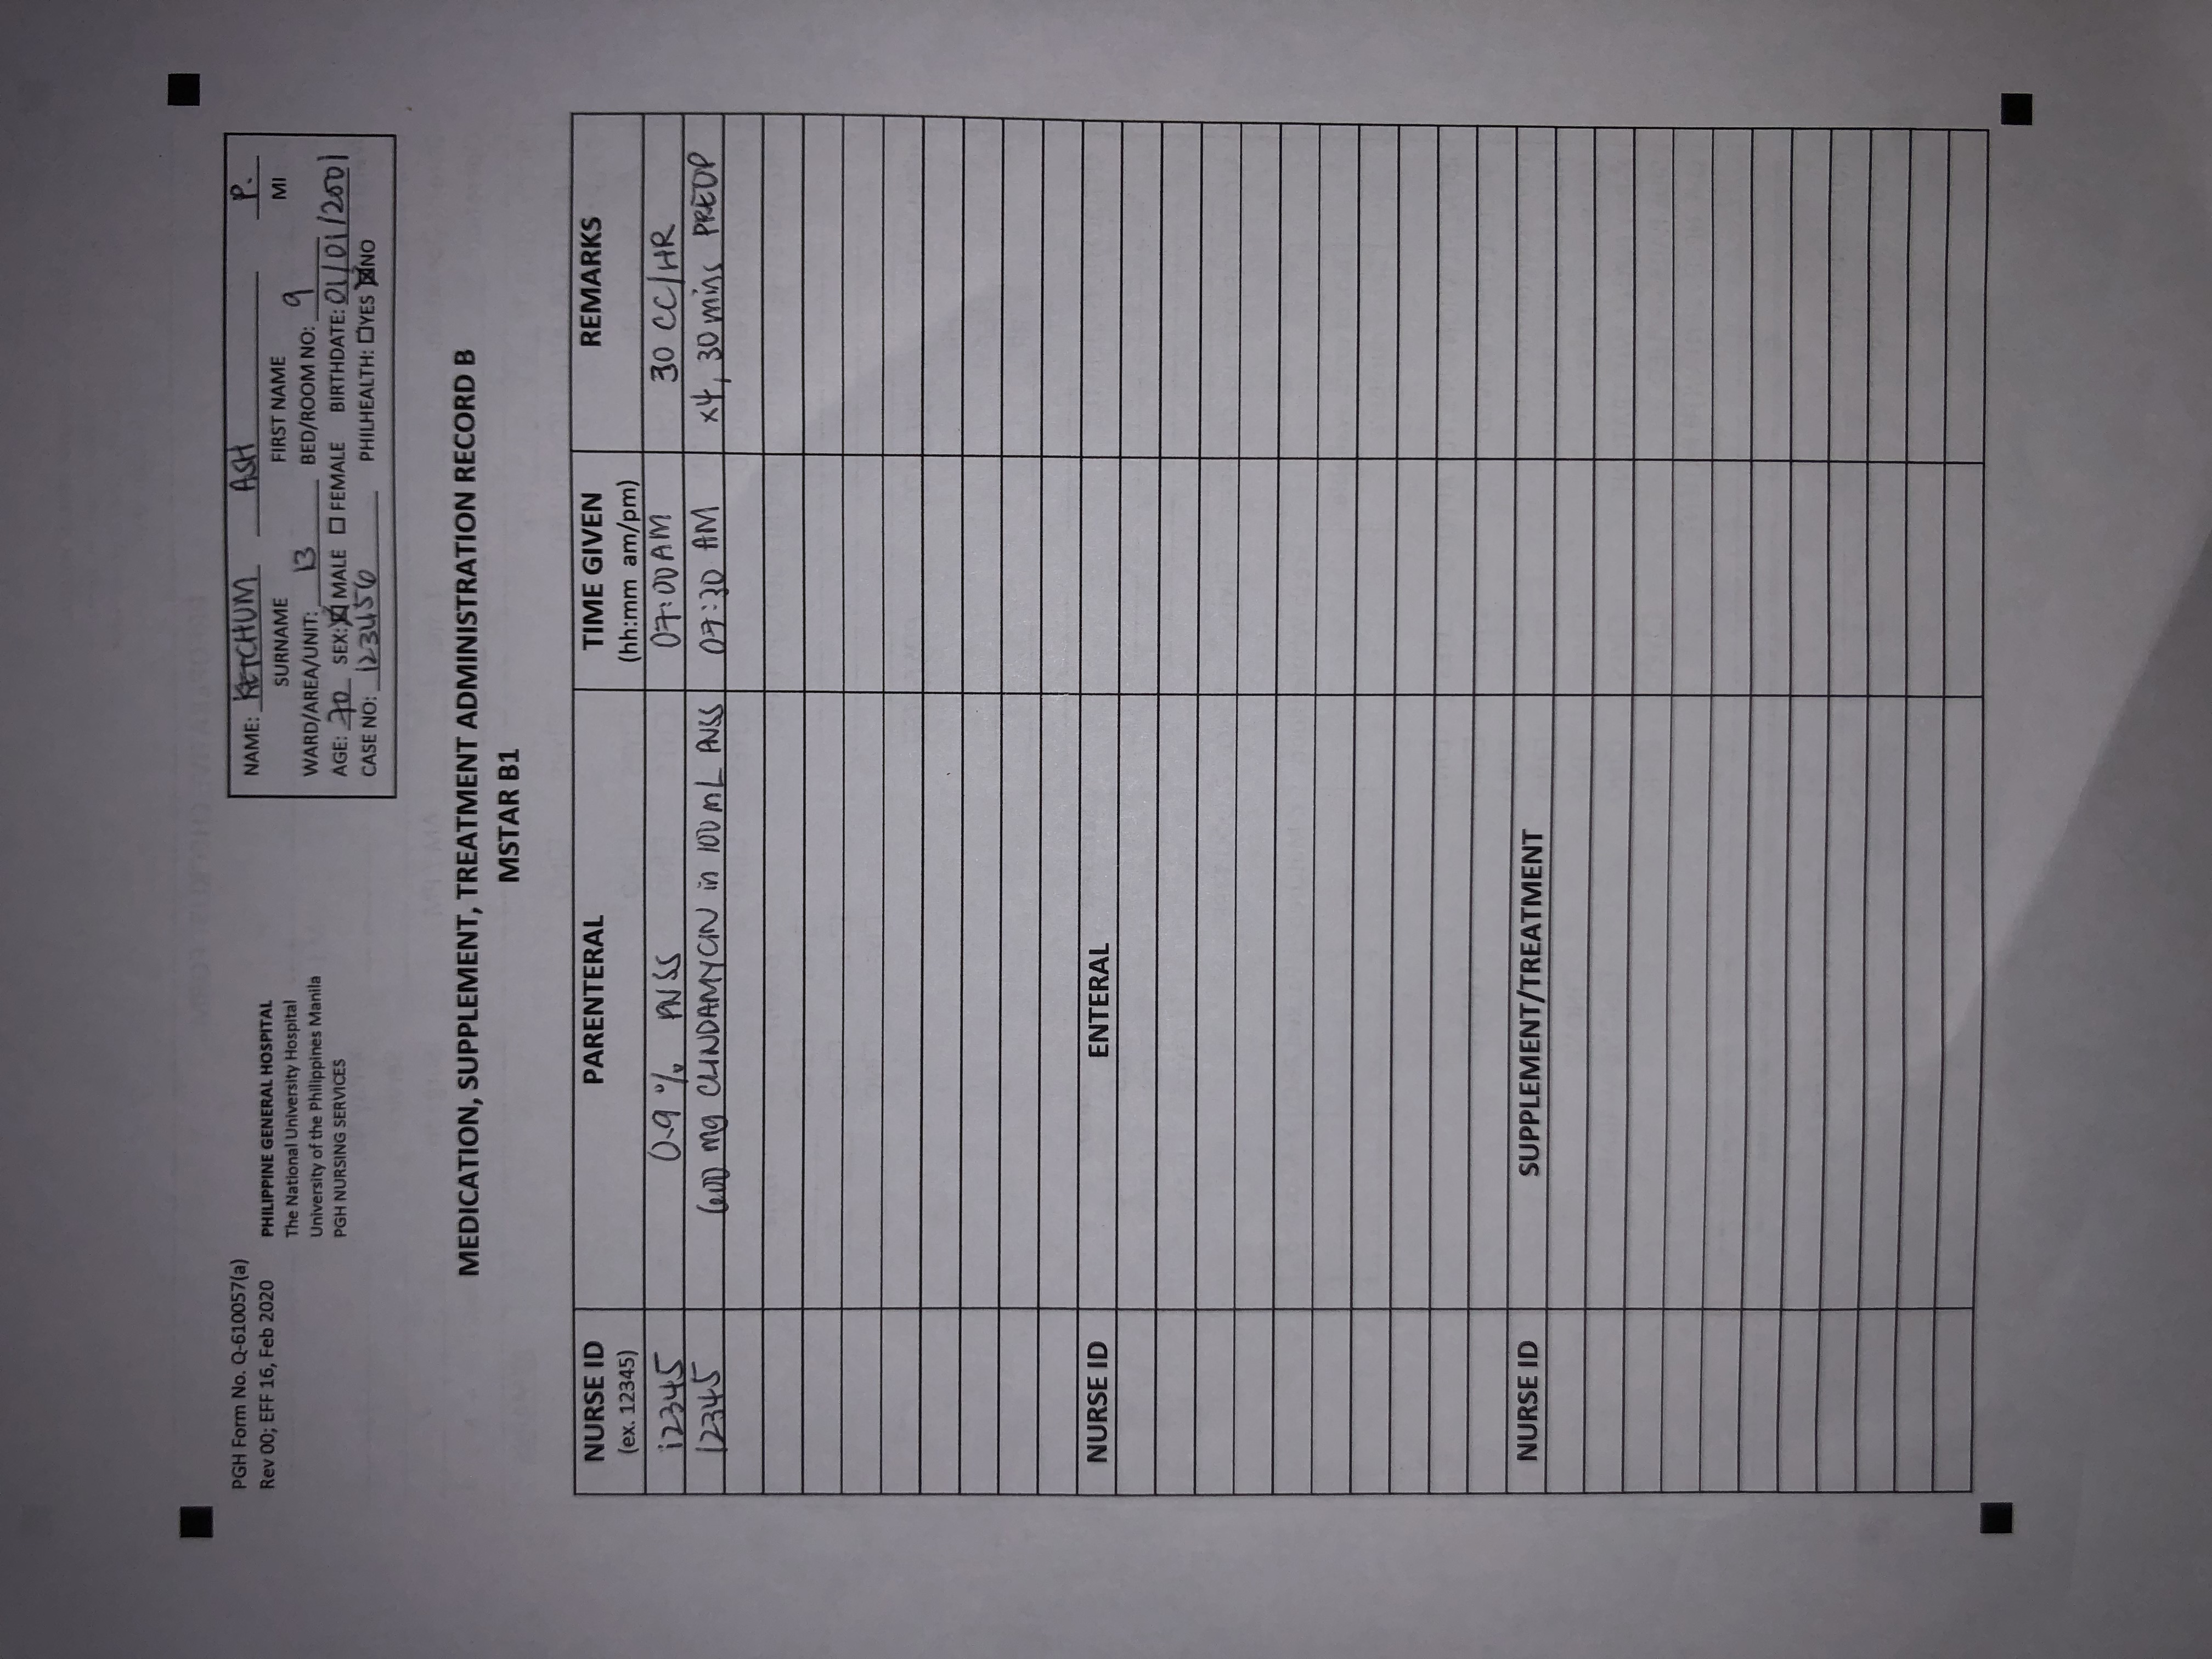 PGH Form No. Q-610057(a)
Rev 00; EFF 16, Feb 2020
PHILIPPINE GENERAL HOSPITAL
The National University Hospital
University of the Philippines Manila
PGH NURSING SERVICES
NAME: KETCHUM ASH P.
SURNAME FIRST NAME MI
WARD/AREA/UNIT: 13 BED/ROOM NO: 9
AGE: SEX: ☒ MALE ☐ FEMALE BIRTHDATE: 01/01/2001
CASE NO: 123456 PHILHEALTH: ☐YES ☒NO
MEDICATION, SUPPLEMENT, TREATMENT ADMINISTRATION RECORD B
MSTAR B1
NURSE ID PARENTERAL TIME GIVEN REMARKS
(ex. 12345) (hh:mm am/pm)
12345 0.9 % PNSS 07:00 AM 30 CC/HR
12345 600 mg CLINDAMYCIN in 100 mL PNSS 07:30 AM x4, 30 mins PREOP
NURSE ID ENTERAL
NURSE ID SUPPLEMENT/TREATMENT